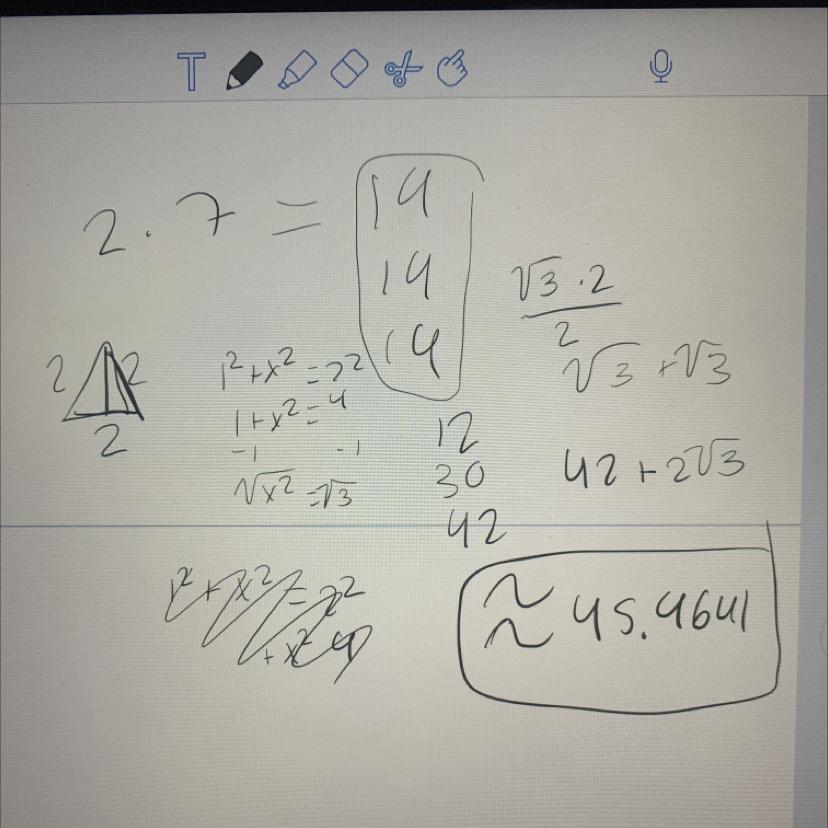 T
2 · 7 = 14
14
14
√3 · 2
2
√3 + √3
2 2
2
1² + x² = 2²
1 + x² = 4
-1 -1
√x² = √3
12
30
42
42 + 2√3
1² + x² = 2²
+ x² 4
≈ 45.4641